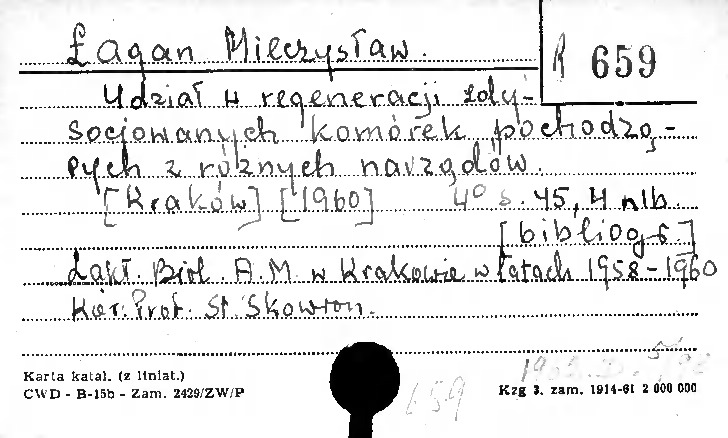 Łagan Mieczysław.
R 659
Udział w regeneracji zdyso-
socjowanych komórek pochodzą-
cych z różnych narządów.
[Kraków] [1960] 4° s. 45, 4 nlb.
[bibliogr.]
Zakł. Biol. A.M. w Krakowie w latach 1958-1960
Kier. Prof. St. Skowron.
Karta katal. (z liniat.)
CWD - B-15b - Zam. 2429/ZW/P
659
Kzg 3. zam. 1914-61 2 000 000